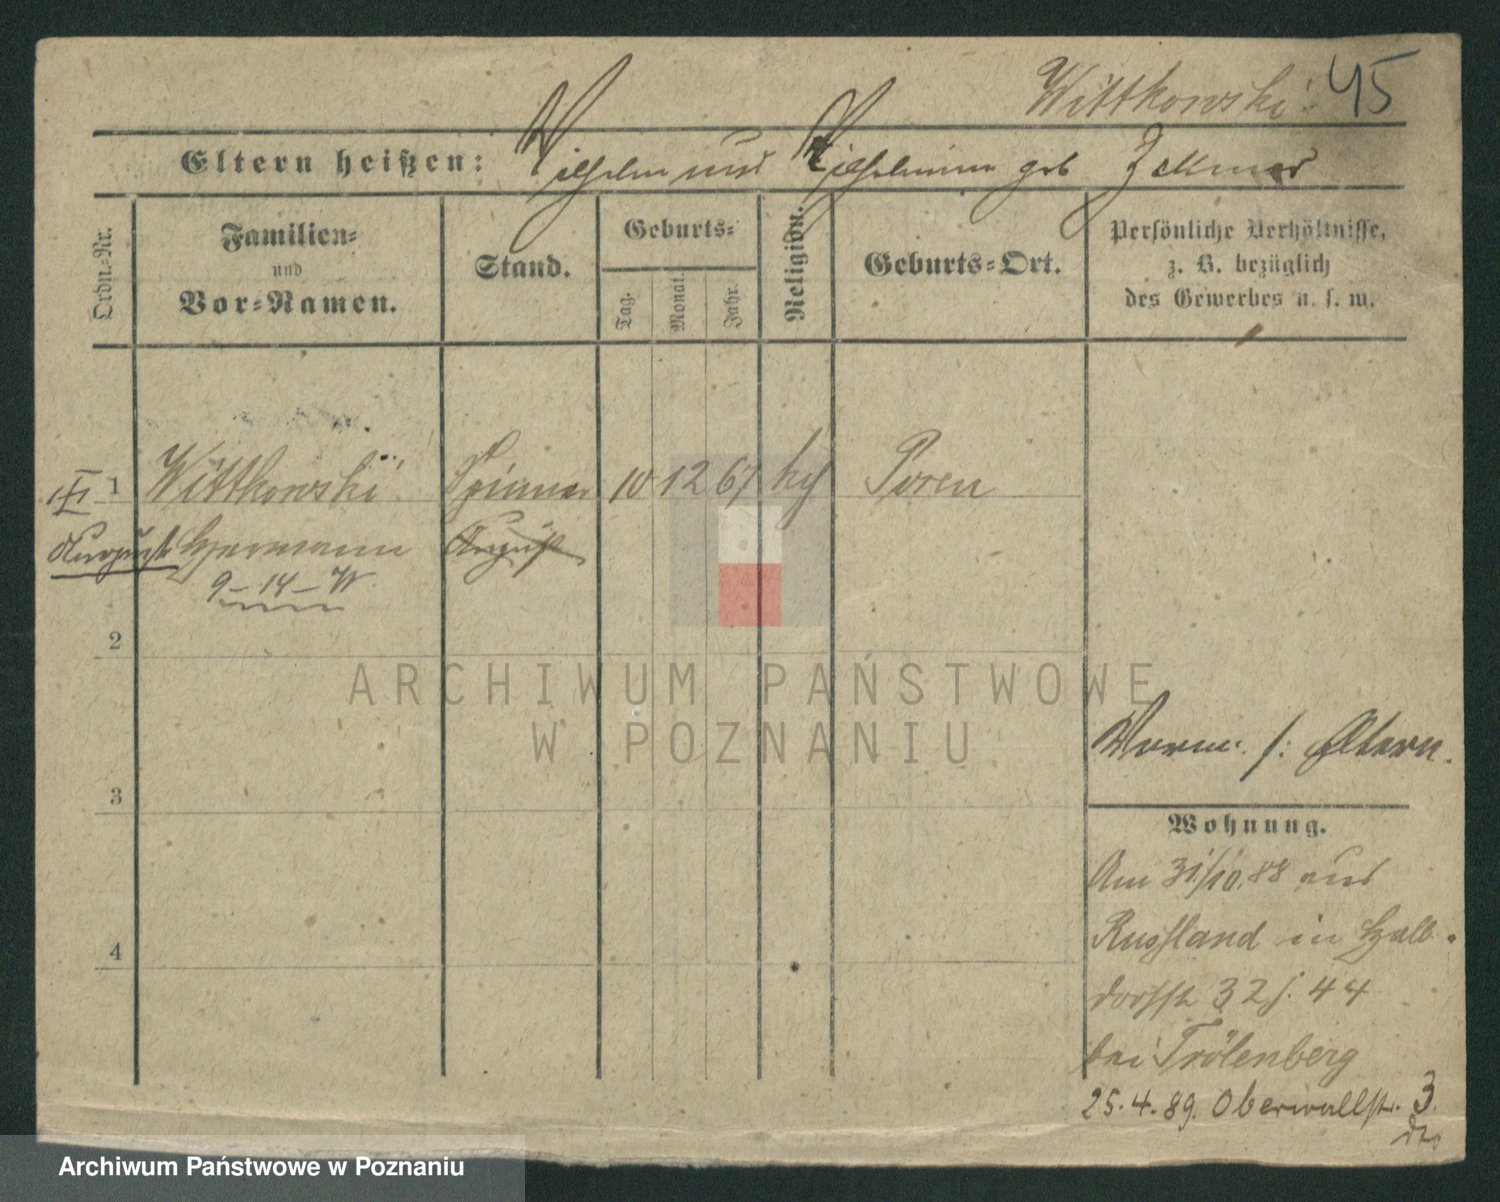 Wittkowski 45
Eltern heißen: Wilhelm und Wilhelmine geb
Ordn.-Nr.
Familien-
und
Vor-Namen.
Stand.
Geburts-
Tag.
Monat.
Jahr.
Religion.
Geburts-Ort.
Persönliche Verhältnisse,
z. B. bezüglich
des Gewerbes u. s. w.
1 Wittkowski 10 12 67 Posen
August Hermann August
9-14-
2
3
4
Verm. s. Eltern.
Wohnung.
Am 31/10.88 aus
Russland in Halb-
dorfstr 32 j. 44
bei Trölenberg
25.4.89. Oberwallstr. 3.
ARCHIWUM PAŃSTWOWE
W POZNANIU
Archiwum Państwowe w Poznaniu